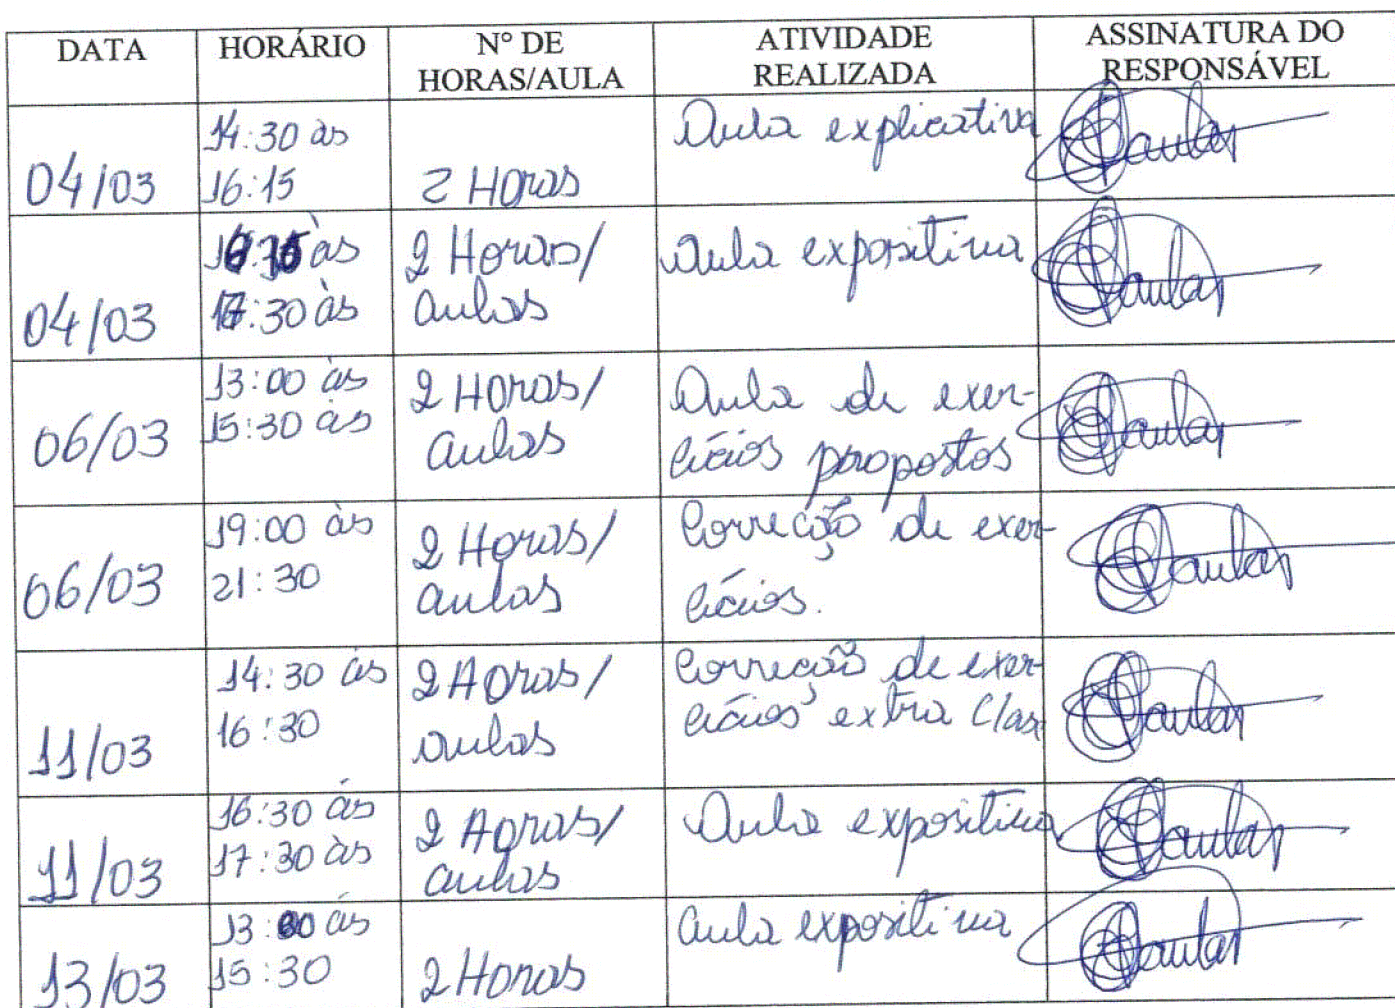 DATA HORÁRIO N° DE HORAS/AULA ATIVIDADE REALIZADA ASSINATURA DO RESPONSÁVEL
04/03 14:30 às 16:15 2 Horas Aula explicativa
04/03 às 17:30 às 2 Horas/ aulas aula expositiva
06/03 13:00 às 15:30 às 2 Horas/ aulas Aula de exer- cícios propostos
06/03 19:00 às 21:30 2 Horas/ aulas Correção de exer- cícios.
11/03 14:30 às 16:30 2 Horas/ aulas Correção de exer- cícios extra Clas
11/03 16:30 às 17:30 às 2 Horas/ aulas Aula expositiva
13/03 13:00 às 15:30 2 Horas aula expositiva